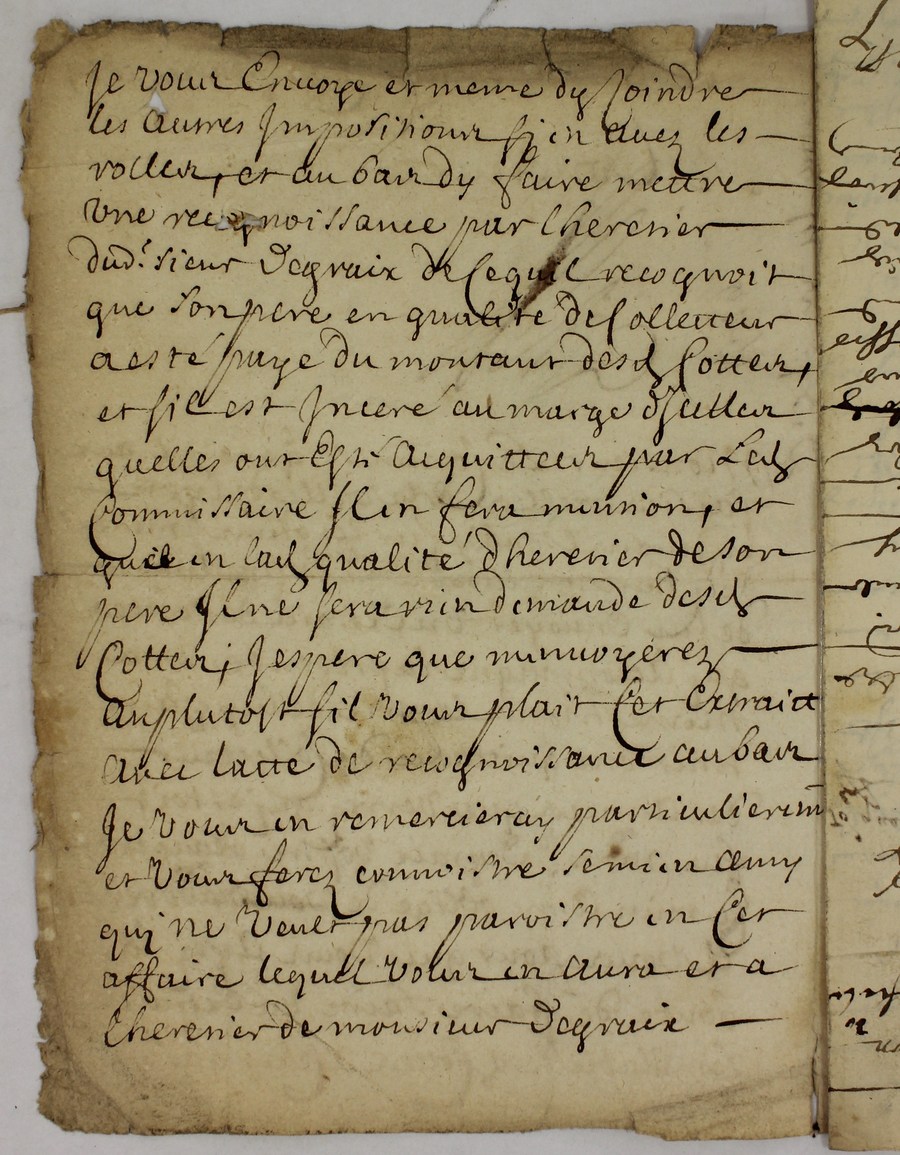 Je vous Envoye et meme dy Joindre
les autres Impositions si en avez les
rolles, et au bas dy faire mettre
une recognoissance par lheretier
dud.r sieur Degraix de ce quil recognoit
que son pere en qualité de Collecteur
a esté payé du montant desd Cottes,
et sil est Inceré au marge dicelles
quelles ont Esté acquittees par Led
Commissaire Il en fera mension, et
quil en lad qualité dheretier de son
pere Il ne sera rien demande desd
Cottes, Jespere que menvoyerez
au plutost sil vous plait Cet Extraict
avec lacte de recognoissance au bas
Je vous en remercieray particulierem
et vous ferez connoistre se mien amy
qui ne veult pas paroistre en Cet
affaire lequel vous en aura et a
lheretier de monsieur Degraix